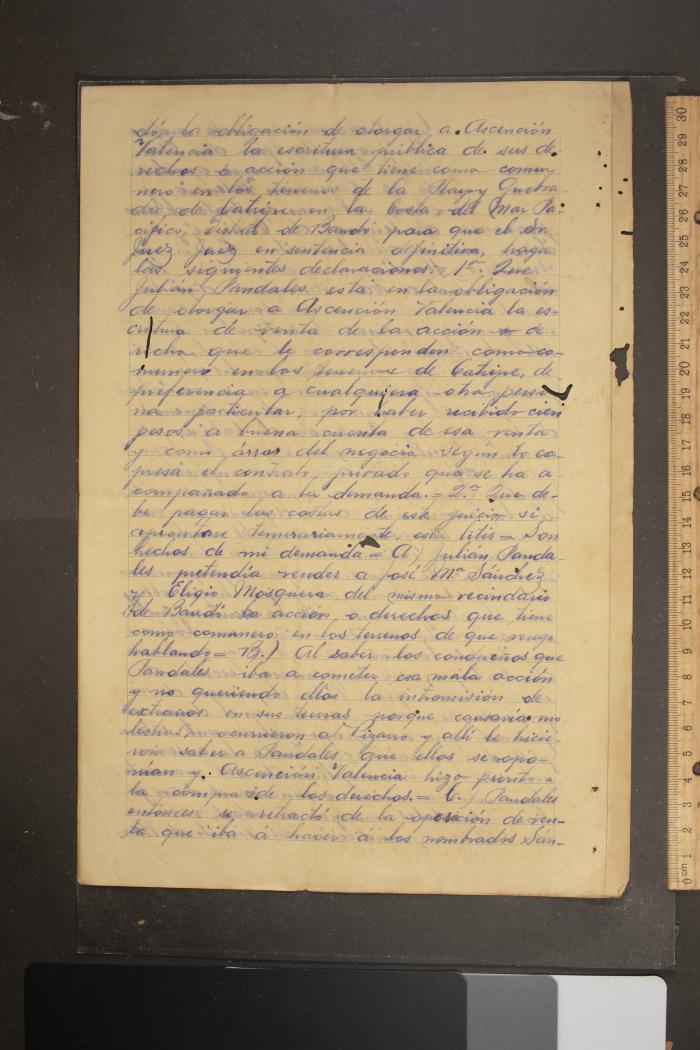 dó, la obligación de otorgar, a Ascención
Valencia la escritura pública de sus de
rechos o acción que tiene como comu-
nero en los terrenos de la Playa y Quebra-
da, de Catripe en la Costa del Mar Pa-
cífico, Distrito de Baudó para que el Sr
Juez en sentencia definitiva, haga
las siguientes declaraciones: 1ª. Que
Julián Pandales está en la obligación
de otorgar a Ascención Valencia la es-
critura de venta de la acción o de
recho que le corresponden como co-
munero en los terrenos de Catripe, de
preferencia a cualquiera otra perso-
na particular, por haber recibido cien
pesos a buena cuenta de esa venta
y como arras del negocio según lo ex-
presa el contrato privado que se ha a-
compañado a la demanda.= 2.ª Que de-
be pagar las costas de este juicio si
afrontare temerariamente, esta litis = Son
hechos de mi demanda = A.) Julián Panda-
les pretendía vender a José Mª Sánchez
y Eligio Mosquera del mismo vecindario
de Baudó la acción, o derechos que tiene
como comunero en los terrenos de que vengo
hablando = B.) Al saber los comuneros que
Pandales iba a cometer esa mala acción
y no queriendo ellos la intromisión de
extraños en sus tierras porque causaría mo-
lestias, ocurrieron a Pizarro y allí le hicie-
ron saber a Pandales que ellos se opo-
nían y Ascención Valencia hizo pronto
la compra de los derechos.= C.) Pandales
entonces se retractó de la operación de ven-
ta que iba á hacer á los nombrados Sán-